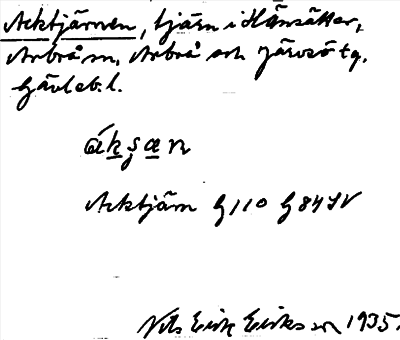 Acktjärnen, tjärn i Hänsätter,
Arbrå sn. Arbrå och Järvsö tg.
Gävleb. l.
áks̨an
Acktjärn G 110 G 84 SV
Nils Erik Eriksson 1935.